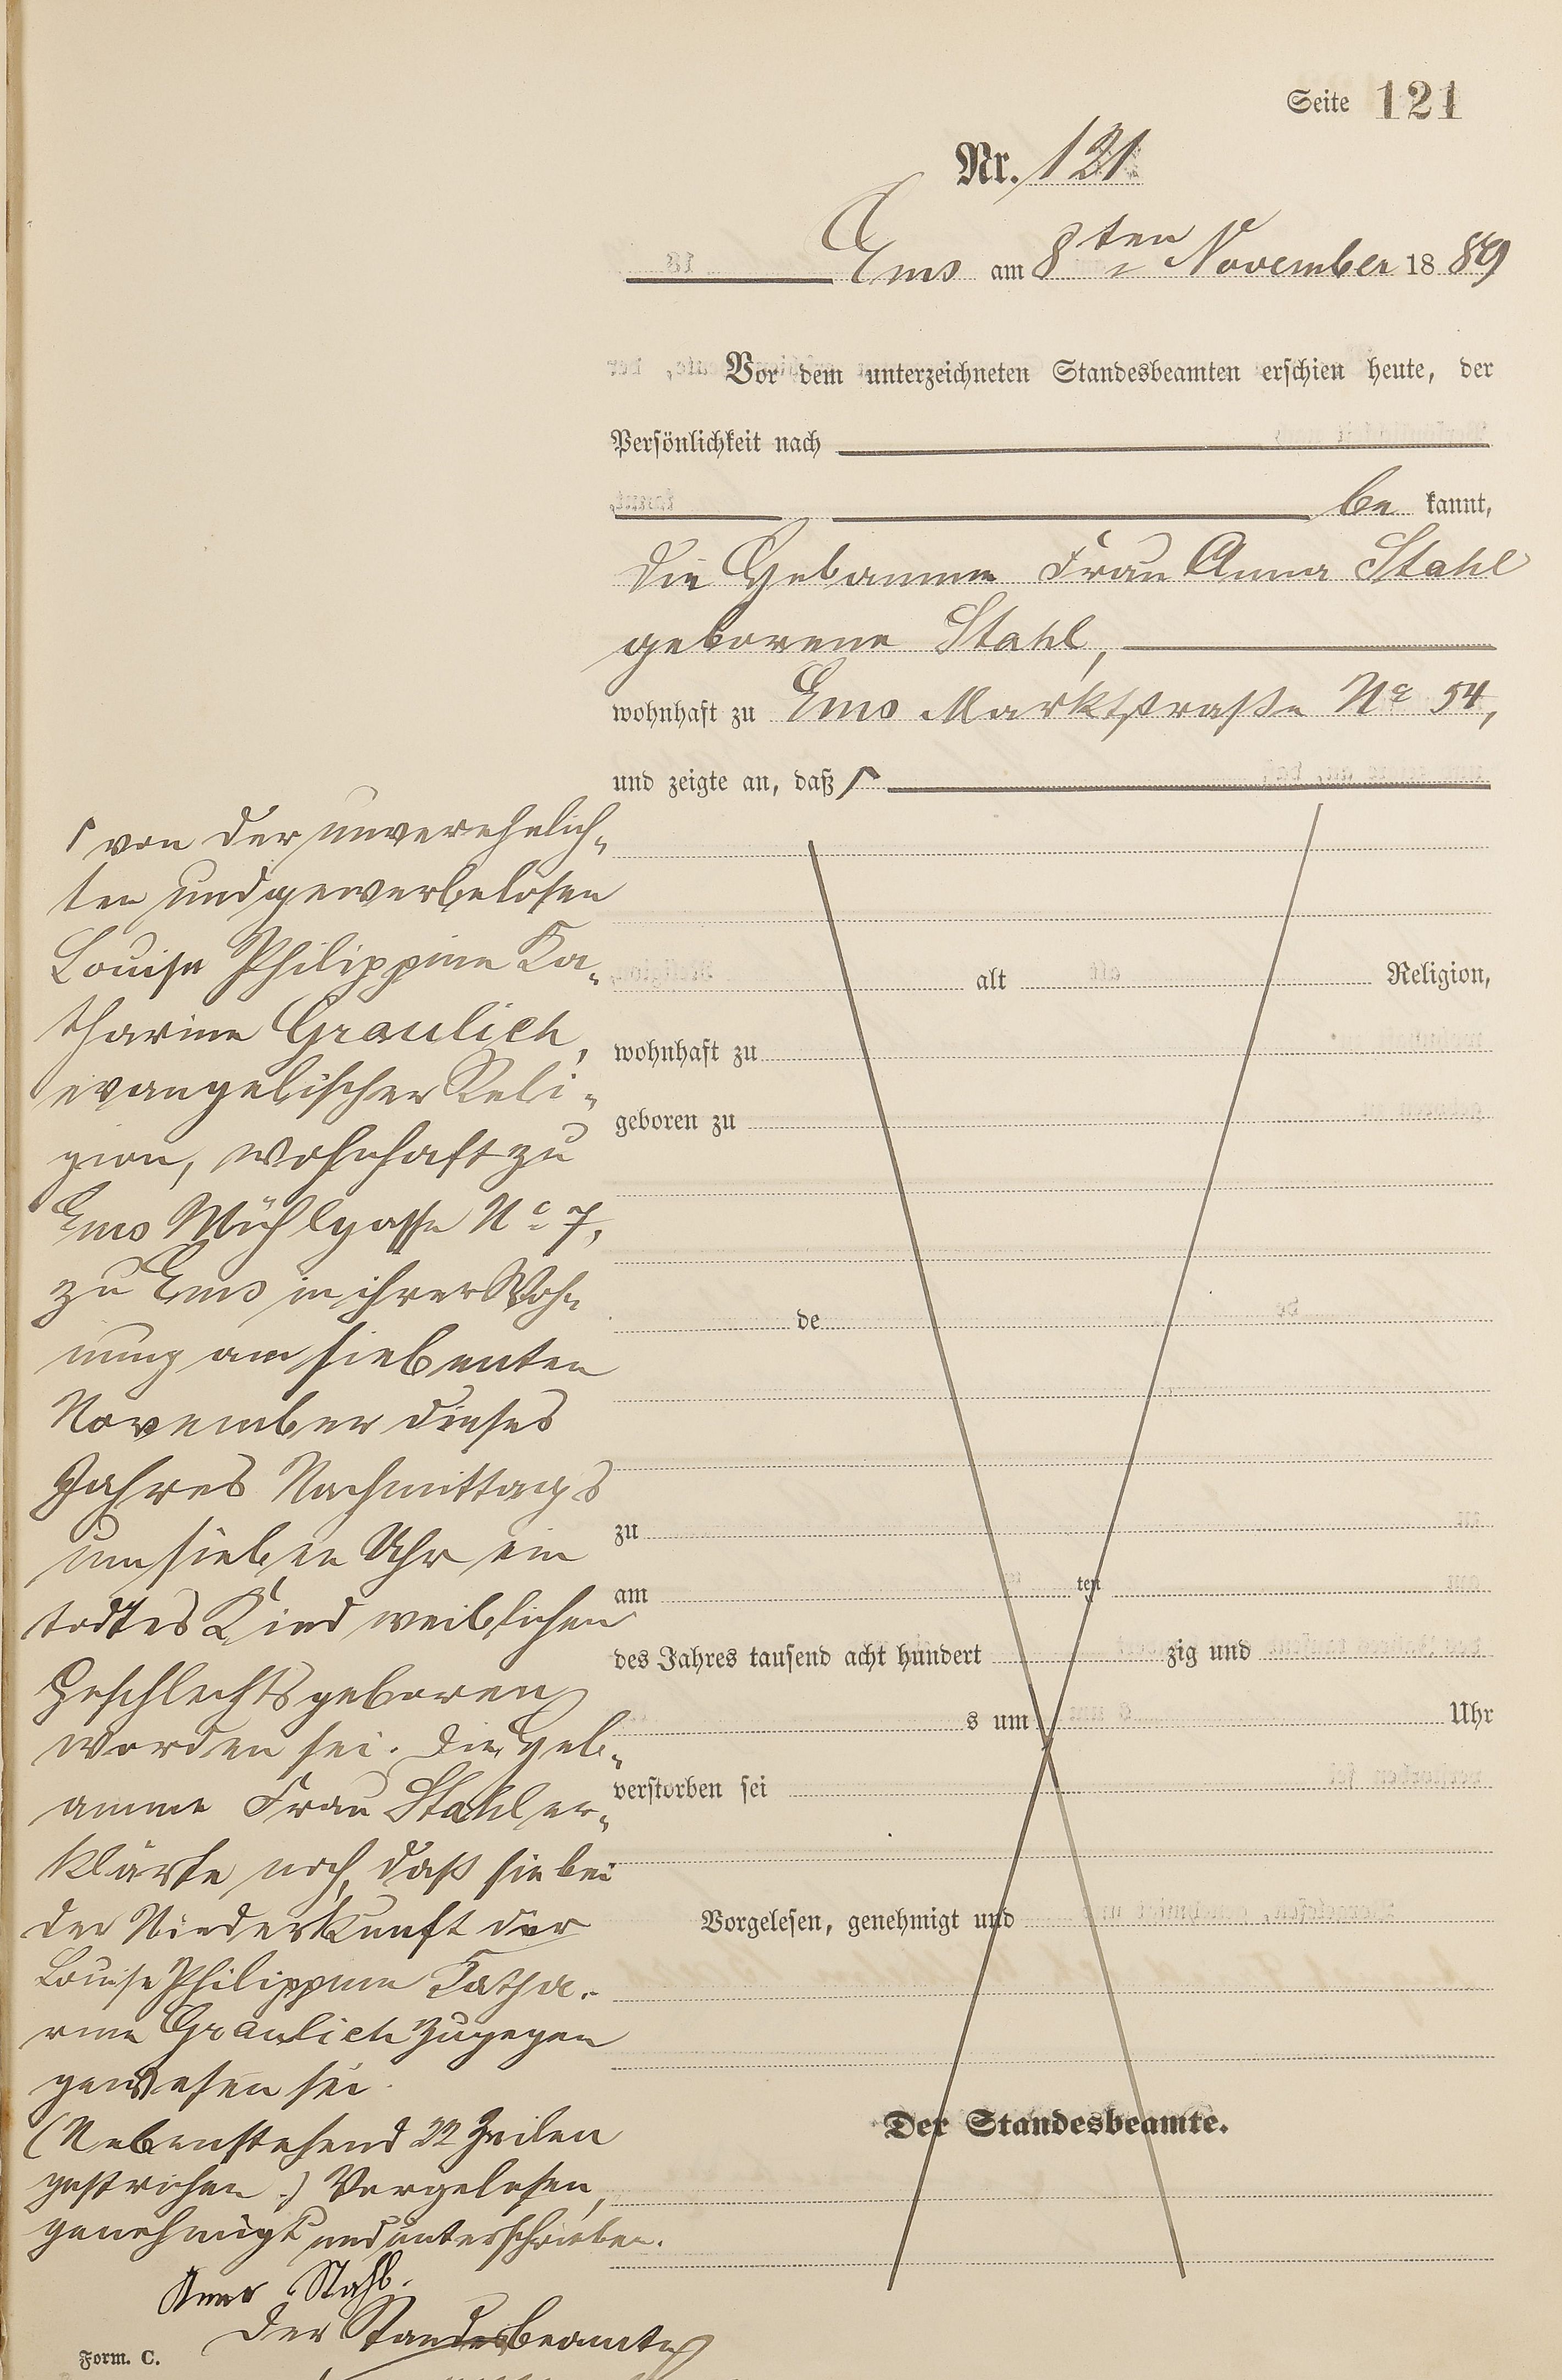 Seite 121
Nr. 121
Ems am 8ten November 1889
Vor dem unterzeichneten Standesbeamten erschien heute, der
Persönlichkeit nach
be kannt,
die Hebamme Frau Anna Stahl
geborene Stahl,
wohnhaft zu Ems Marktstraße No 54,
und zeigte an, daß
von der unverehelich-
ten und gewerbelosen
Louise Philippine Ka-
tharine Graulich,
evangelischer Reli-
gion, wohnhaft zu
Ems Mühlgasse No 7,
zu Ems in ihrer Woh-
nung am siebenten
November dieses
Jahres Nachmittags
um sieben Uhr ein
todtes Kind weiblichen
Geschlechts geboren
worden sei. Die Heb-
amme Frau Stahl er-
klärte noch, daß sie bei
der Niederkunft der
Louise Philippine Katha-
rine Graulich zugegen
gewesen sei.
(Nebenstehend 22 Zeilen
gestrichen.) Vorgelesen,
genehmigt und unterschrieben.
Anna Stahl.
Der Standesbeamte
alt Religion,
wohnhaft zu
geboren zu
de
zu
am ten
des Jahres tausend acht hundert zig und
s um Uhr
verstorben sei
Vorgelesen, genehmigt und
Der Standesbeamte.
Form. C.